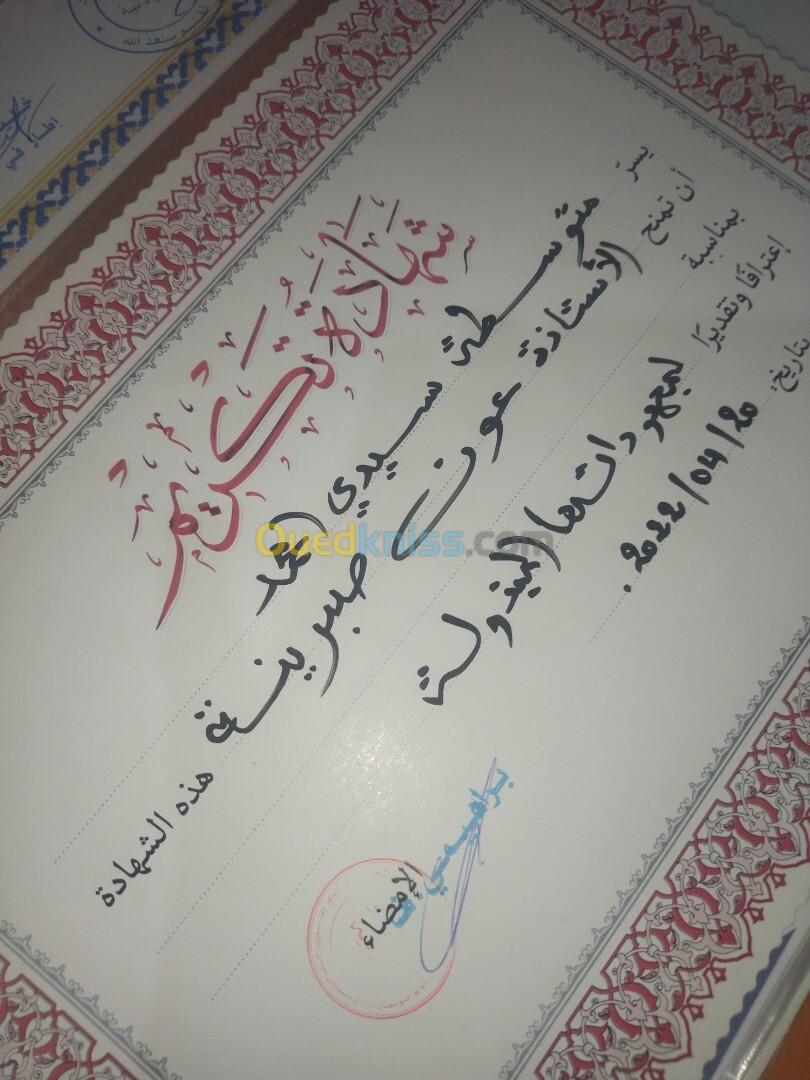 شهادة تكريم
يسر متوسطة سيدي امحمد
أن تمنح الأستاذة عون صبرينة هذه الشهادة
بمناسبة
إعترافا وتقديرًا لمجهوداتها المبذولة
بتاريخ: 2022/04/20.
الإمضاء
براهيمي
سعد الله
Ouedkniss.com